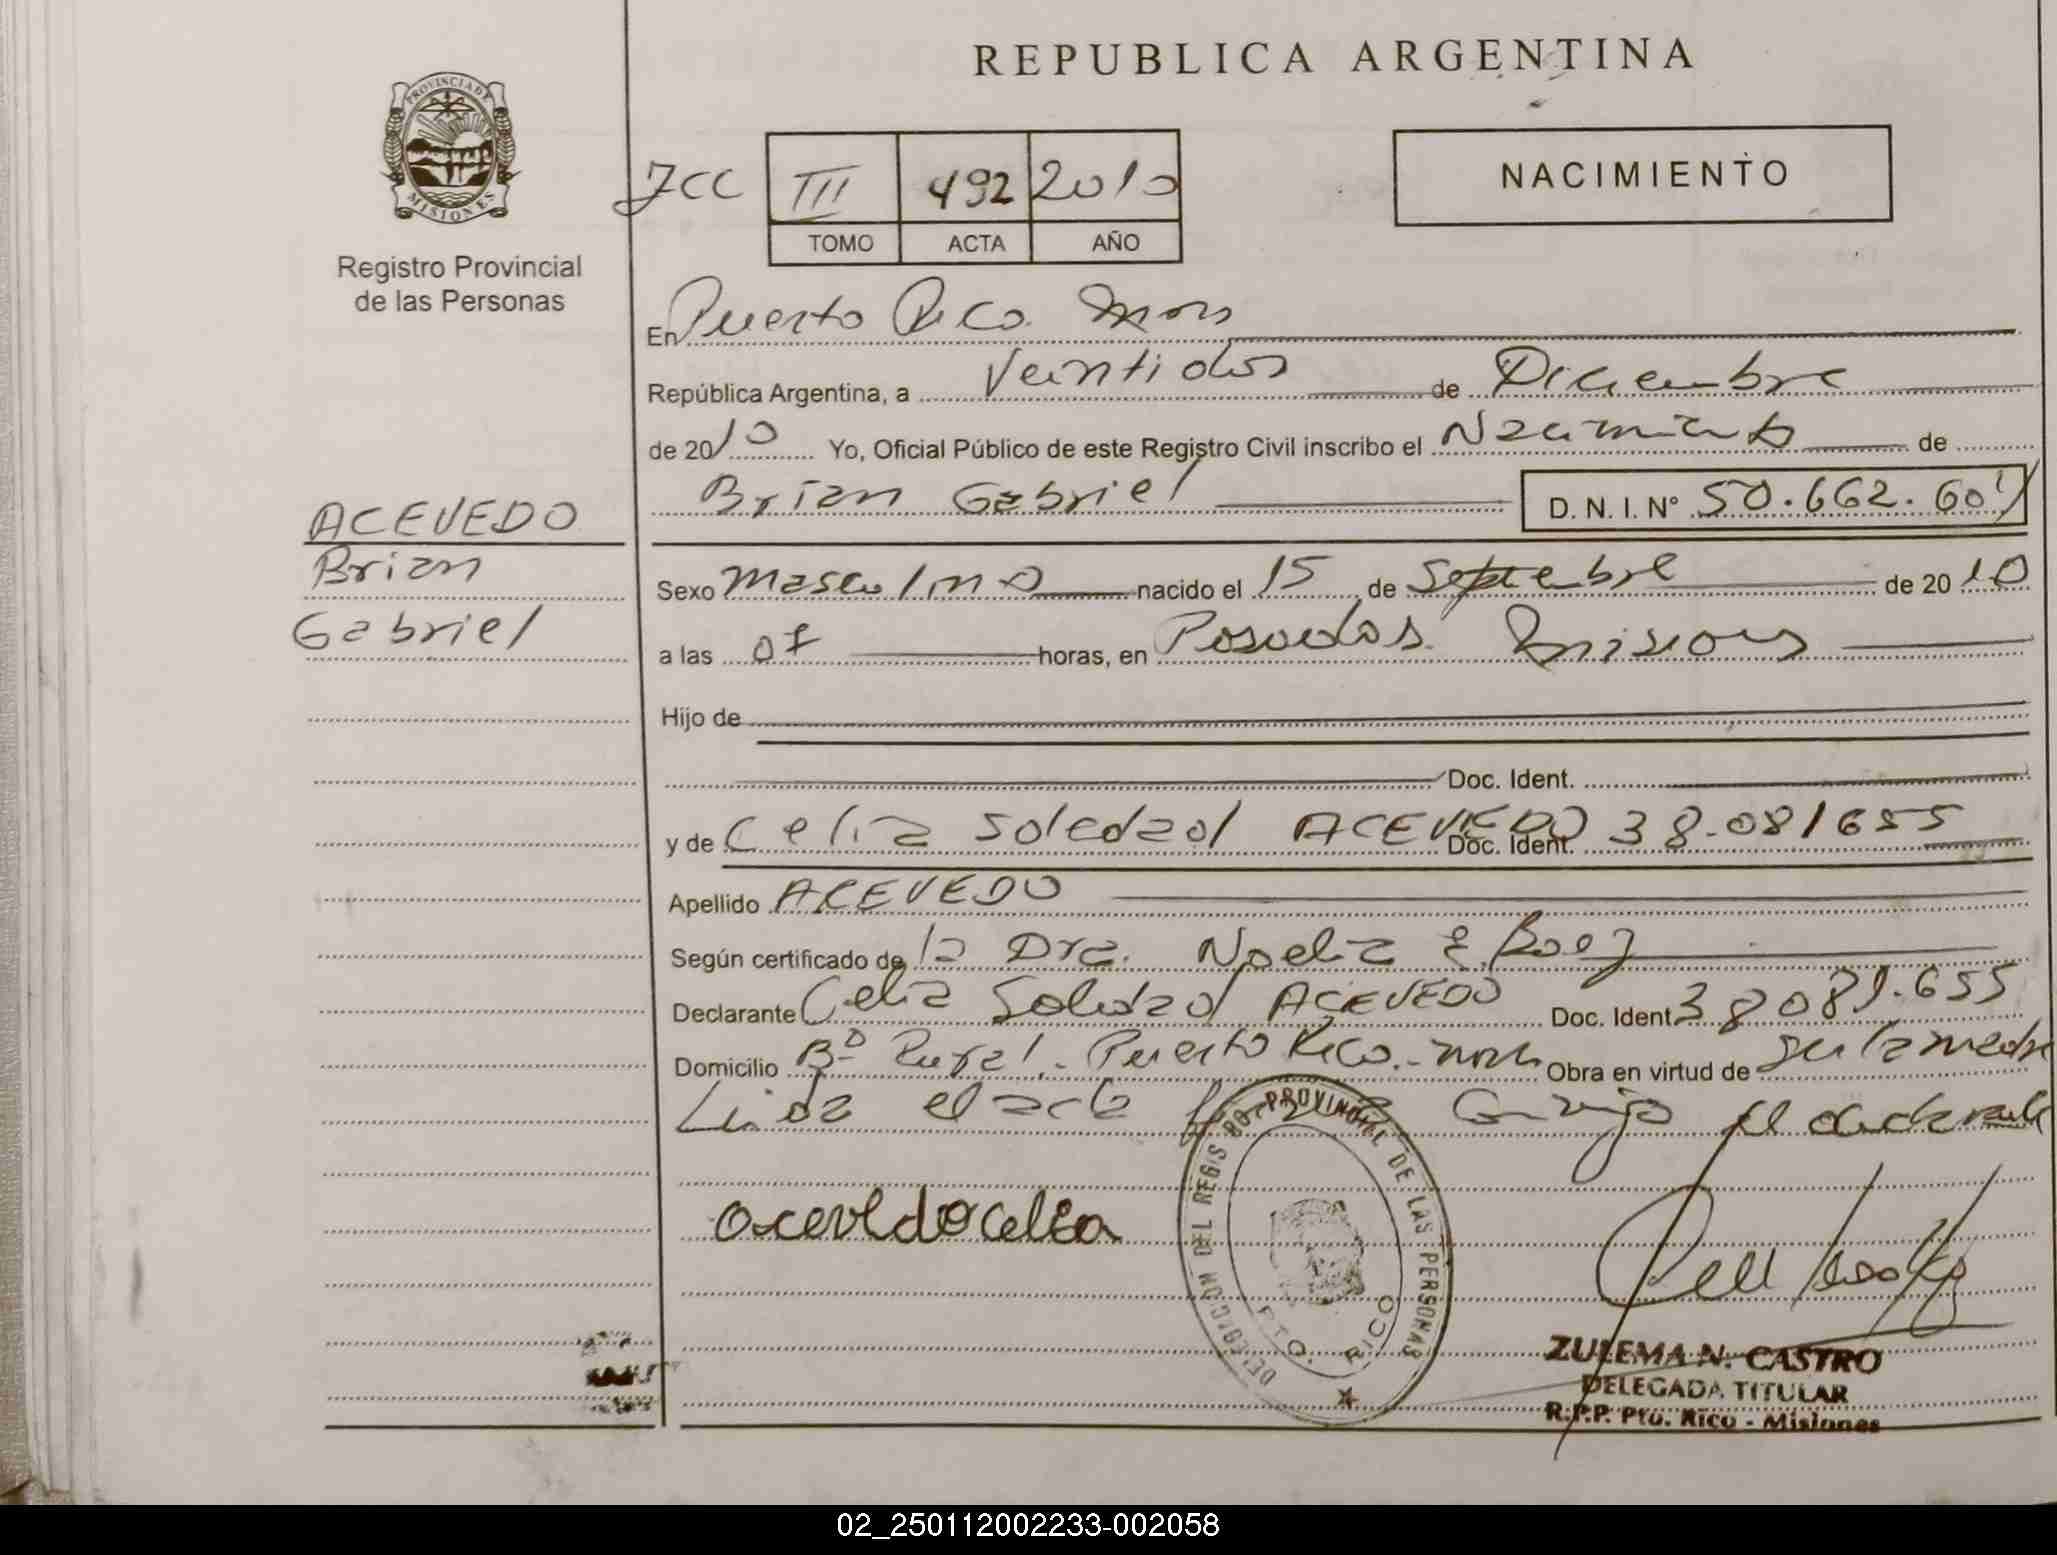 REPUBLICA ARGENTINA
PROVINCIA DE MISIONES
Registro Provincial
de las Personas
III 492 2010
TOMO ACTA AÑO
NACIMIENTO
En Puerto Rico Mnes
República Argentina, a Veintidos de Diciembre
de 2010 Yo, Oficial Público de este Registro Civil inscribo el Nacimiento de
Brian Gabriel D. N. I. N° 50.662.601
ACEVEDO
Brian
Gabriel
Sexo Masculino nacido el 15 de Septiembre de 2010
a las 07 horas, en Posadas Misiones
Hijo de
y Doc. Ident.
y de Celia Soledad ACEVEDO Doc. Ident. 38.081655
Apellido ACEVEDO
Según certificado de la Dra. Noelia E. Baez
Declarante Celia Soledad ACEVEDO Doc. Ident 38081.655
Domicilio Bº Rural - Puerto Rico - Mnes Obra en virtud de ser la madre
Leida el acta firma conmigo el declarante
acevedo celia
DELEGACION DEL REGISTRO PROVINCIAL DE LAS PERSONAS
PTO. RICO
ZULEMA N. CASTRO
DELEGADA TITULAR
R.P.P. Pto. Rico - Misiones
02_250112002233-002058